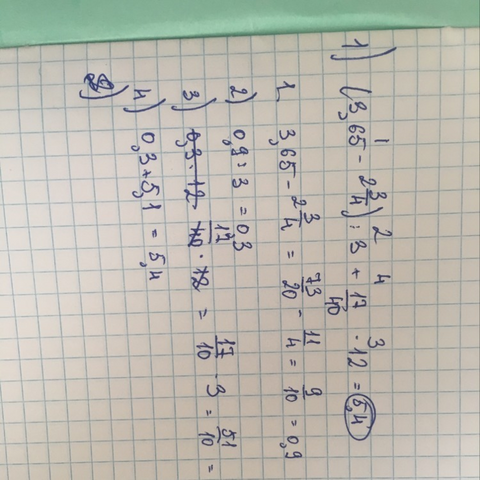 1 2 4 3
1) (3,65 - 2 3/4) : 3 + 17/40 · 12 = 5,4
1. 3,65 - 2 3/4 = 73/20 - 11/4 = 9/10 = 0,9
2) 0,9 : 3 = 0,3
3) 0,3 · 12 17/40 · 12 = 17/10 · 3 = 51/10 =
4) 0,3 + 5,1 = 5,4